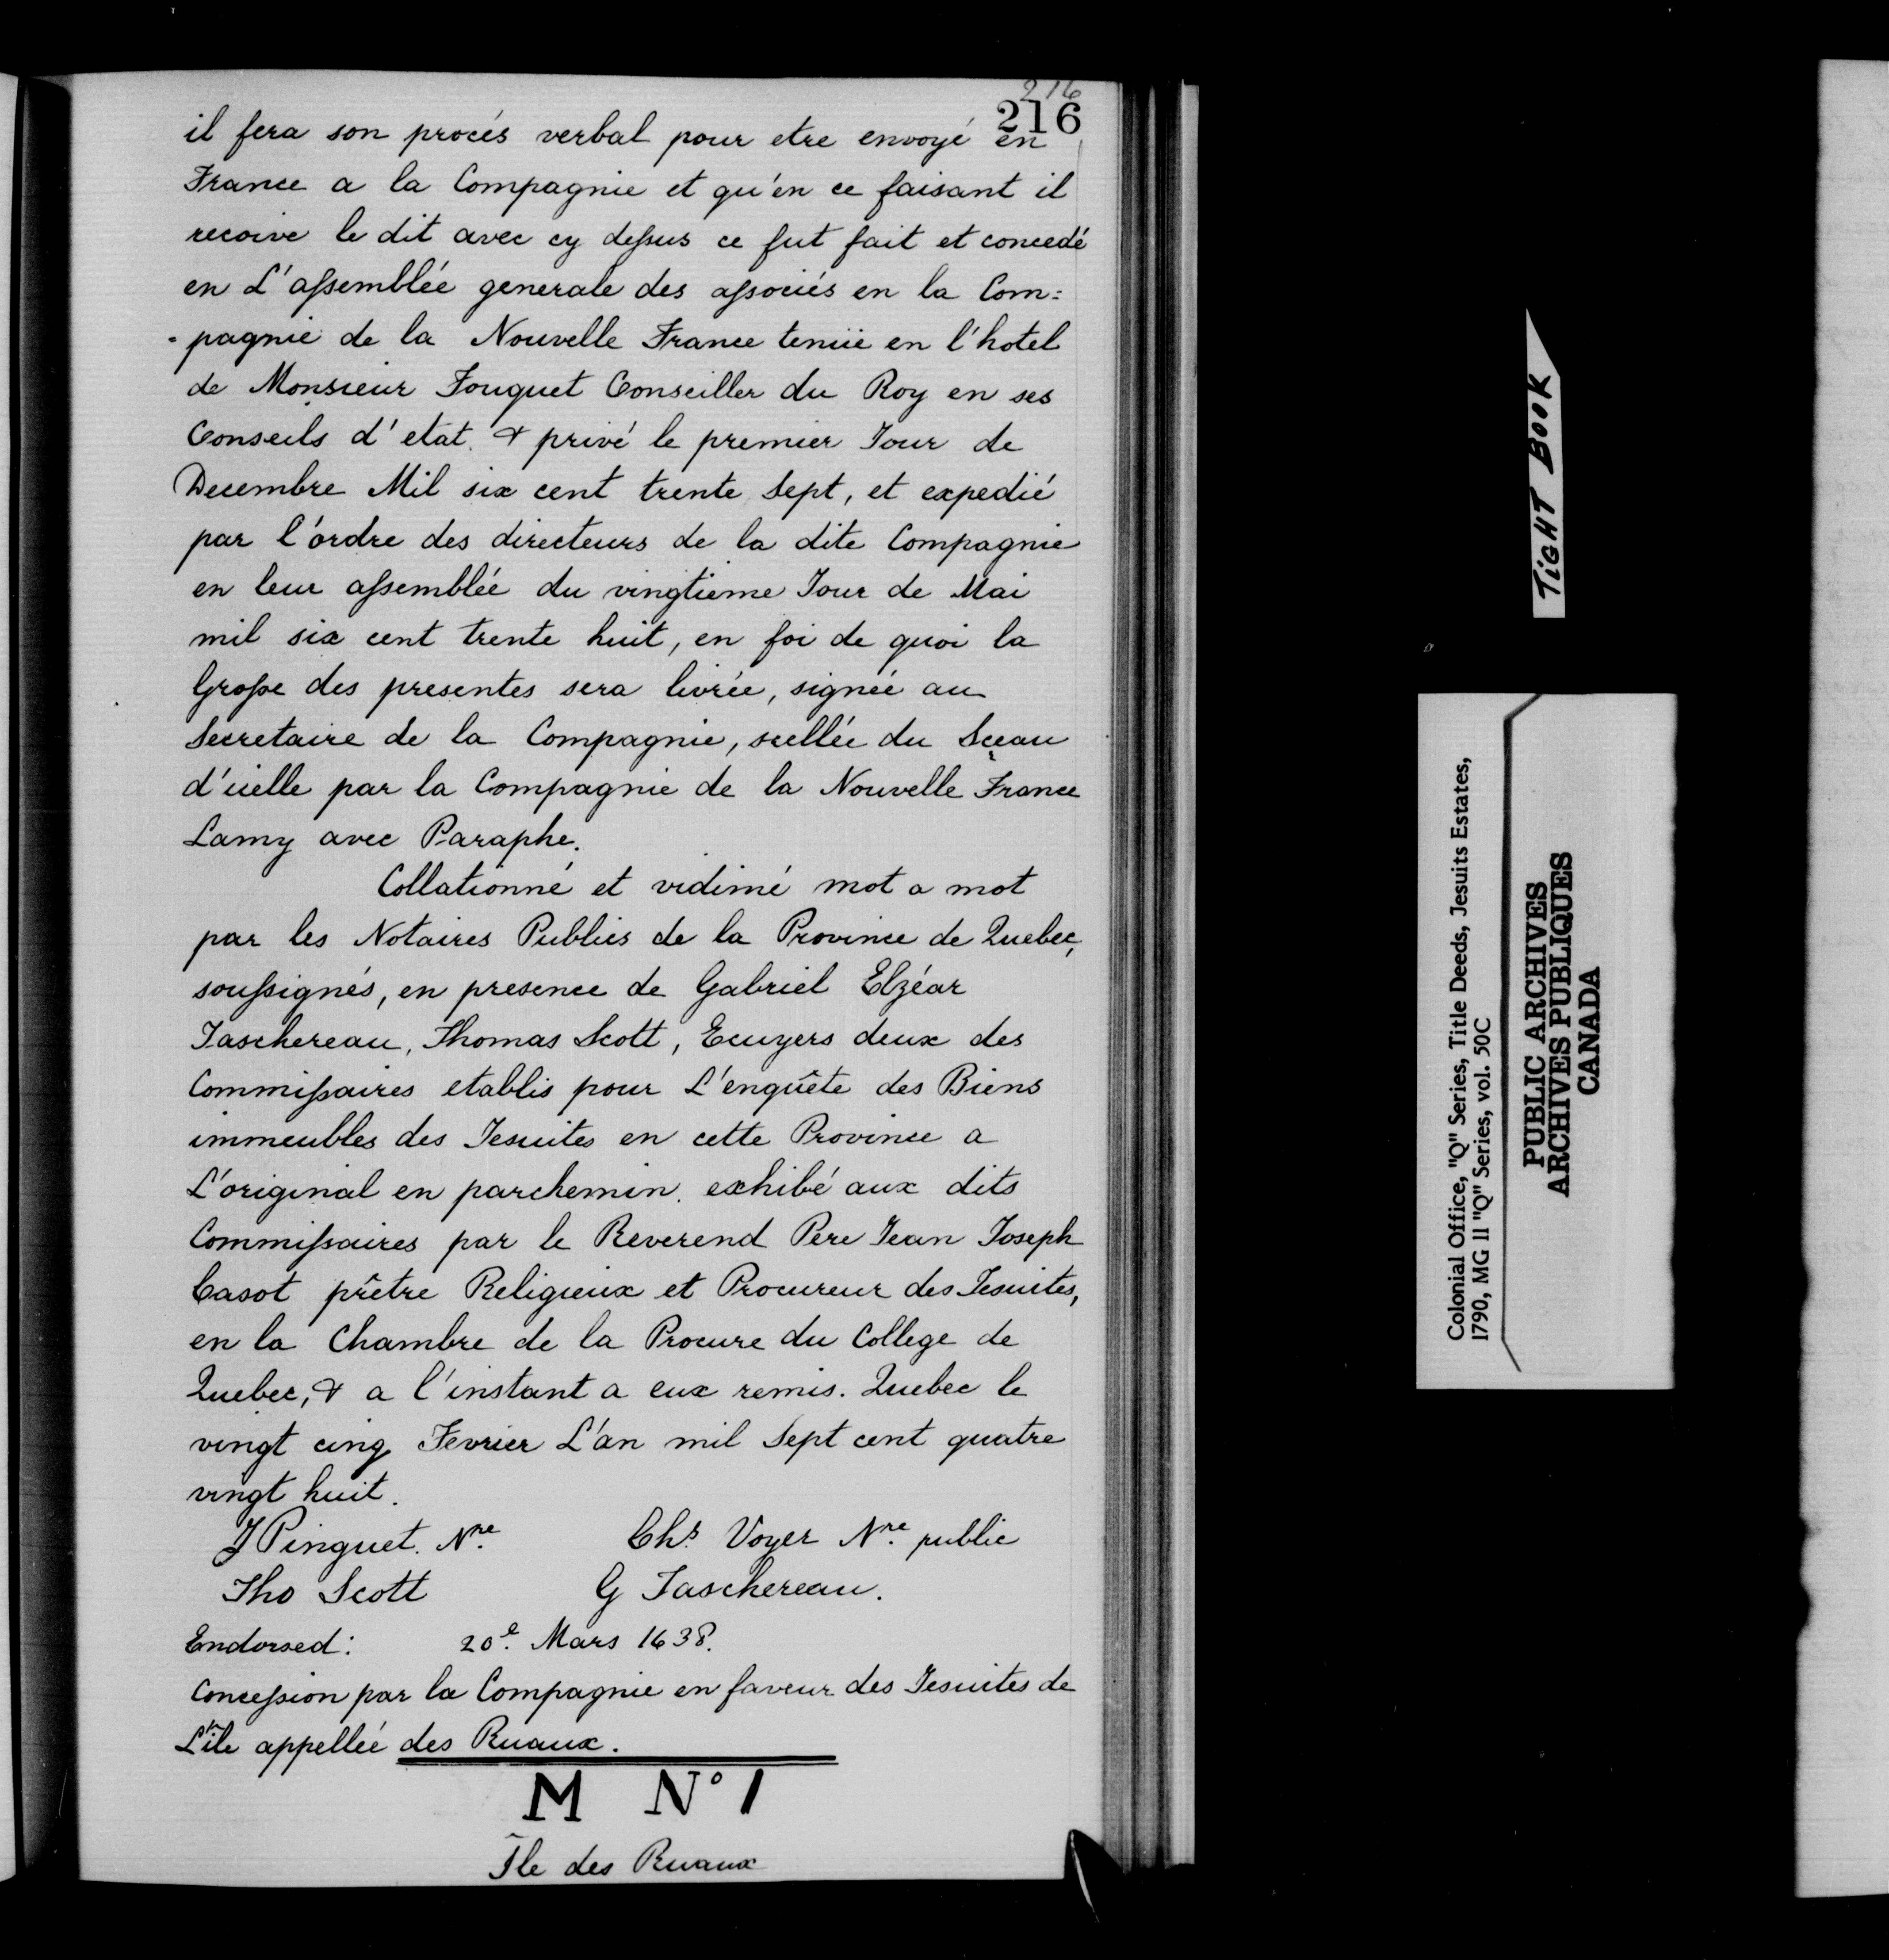 216
216
il fera son procés verbal pour etre envoyé en
France a la Compagnie et qu'en ce faisant il
recoive le dit avec cy deſsus ce fut fait et concedé
en L'aſsemblée generale des aſsociés en la Com=
=pagnie de la Nouvelle France tenüe en l'hotel
de Monsieur Fouquet Conseiller du Roy en ses
Conseils d'etat. & privé le premier Jour de
Decembre Mil six cent trente Sept, et expedié
par l'ordre des directeurs de la dite Compagnie
en leur aſsemblée du vingtieme Jour de Mai
mil six cent trente huit, en foi de quoi la
Groſse des presentes sera livrée, signée au
Secretaire de la Compagnie, scellée du Sceau
d'icelle par la Compagnie de la Nouvelle France
Lamy avec Paraphe.
Collationné et vidimé mot a mot
par les Notaires Publics de la Province de Quebec,
souſsignés, en presence de Gabriel Elzéar
Taschereau, Thomas Scott, Ecuyers deux des
Commiſsaires etablis pour L'enquête des Biens
immeubles des Jesuites en cette Province a
L'original en parchemin. exhibé aux dits
Commiſsaires par le Reverend Pere Jean Joseph
Casot prêtre Religieux et Procureur des Jesuites,
en la Chambre de la Procure du College de
Quebec, & a l'instant a eux remis. Quebec le
vingt cinq Fevrier L'an mil Sept cent quatre
vingt huit.
J Pinguet. Nre. Chs. Voyer Nre. public
Tho Scott G Taschereau.
Endorsed: 20e. Mars 1638.
Conceſsion par la Compagnie en faveur des Jesuites de
L'île appellée des Ruaux.
M No 1
Île des Ruaux
TIGHT BOOK
Colonial Office, "Q" Series, Title Deeds, Jesuits Estates,
1790, MG 11 "Q" Series, vol. 50C
PUBLIC ARCHIVES
ARCHIVES PUBLIQUES
CANADA